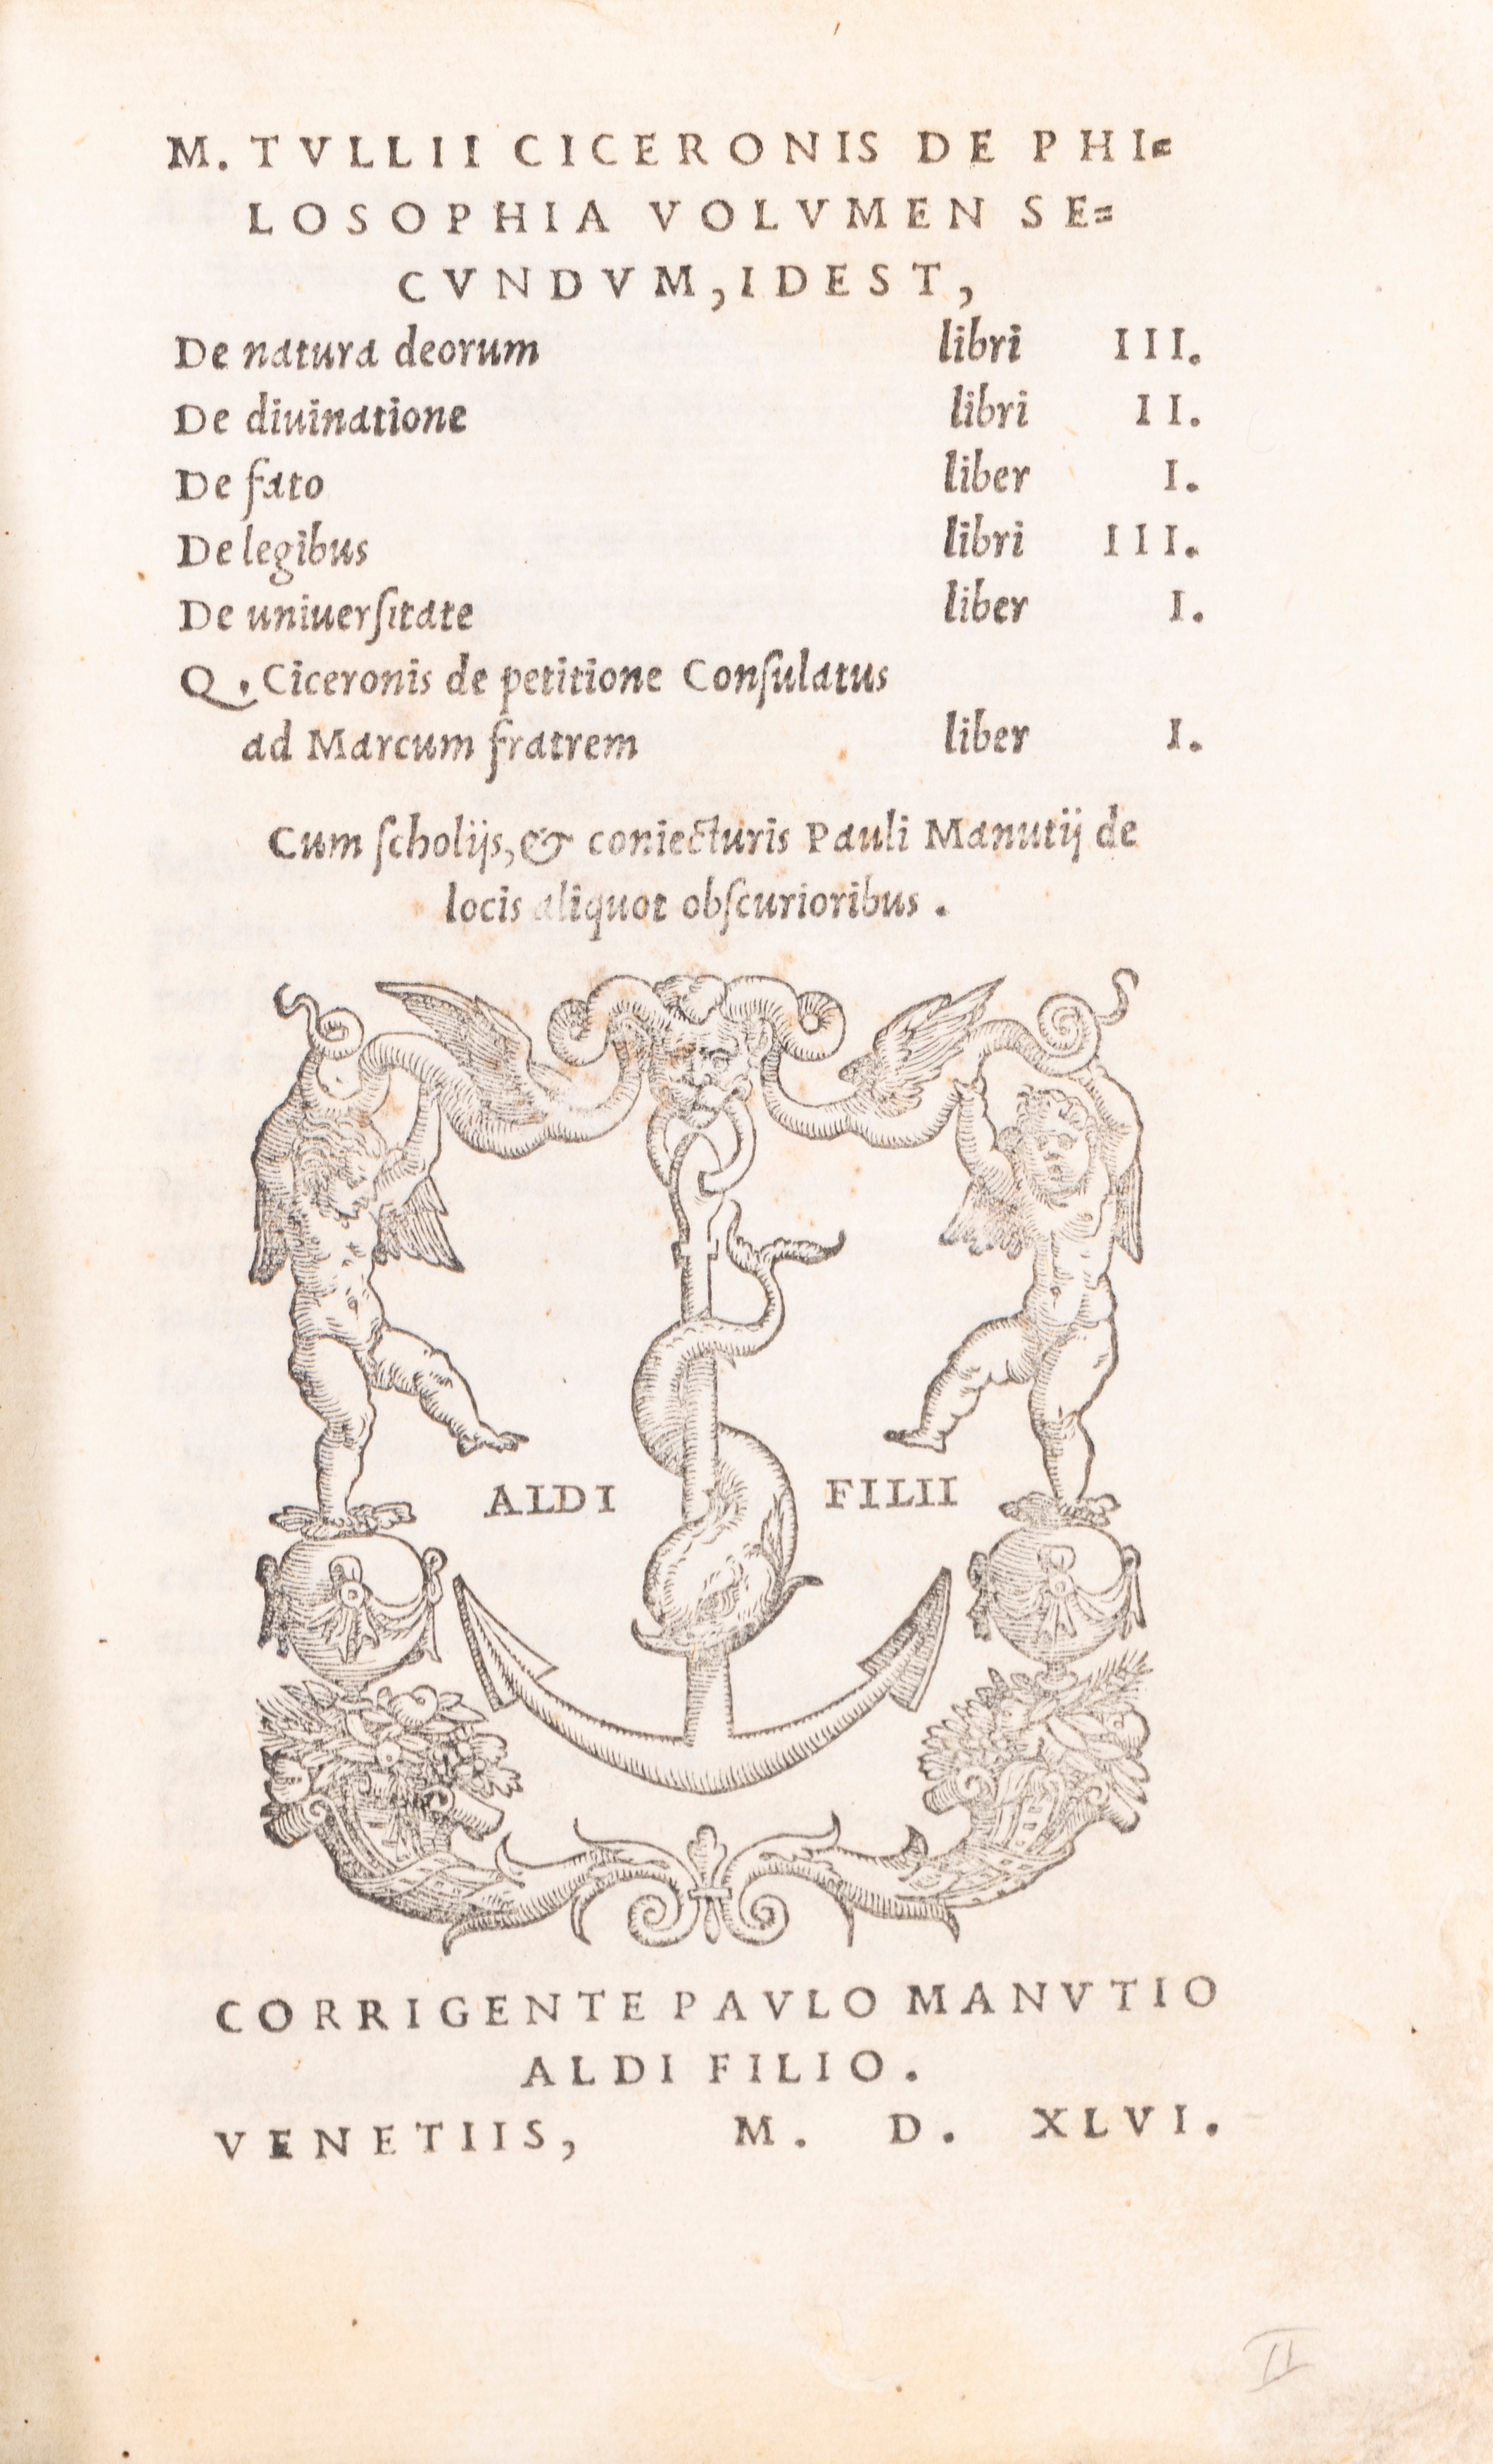 M. TVLLII CICERONIS DE PHI=
LOSOPHIA VOLVMEN SE=
CVNDVM, IDEST,
De natura deorum libri III.
De diuinatione libri II.
De fato liber I.
De legibus libri III.
De uniuerſitate liber I.
Q. Ciceronis de petitione Conſulatus
ad Marcum fratrem liber I.
Cum ſcholijs, & coniecturis Pauli Manutij de
locis aliquot obſcurioribus .
ALDI FILII
CORRIGENTE PAVLO MANVTIO
ALDI FILIO.
VENETIIS, M. D. XLVI.
II